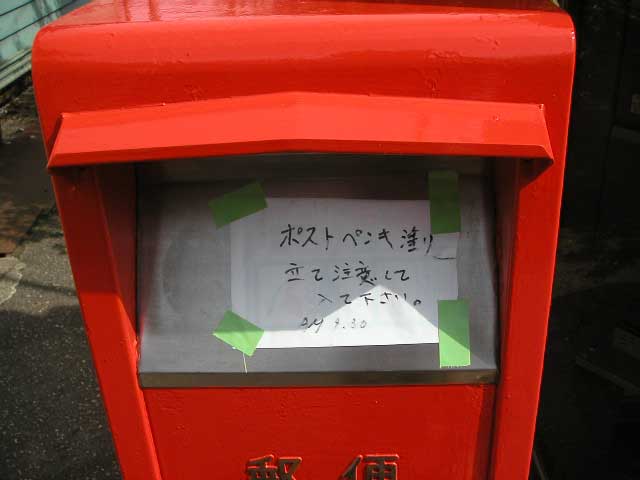 ポストペンキ塗り
立て注意して
入て下さい。
郵便